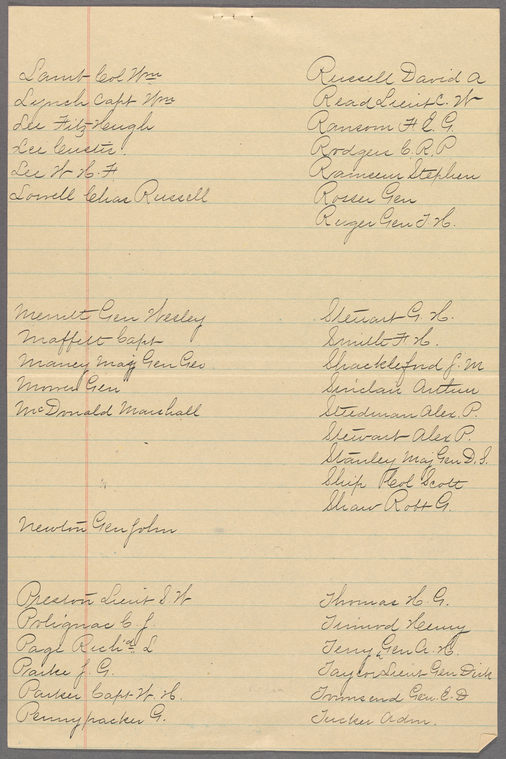 Lamb Col Wm
Lynch Capt Wm
Lee Fitz Heugh
Lee Custis
Lee W H. F
Lowell Chas Russell
Merritt Gen Wesley
Maffitt Capt
Maney Maj Gen Geo
Mower Gen
McDonald Marshall
Newton Gen John
Preston Lieut S W
Polignac C. J.
Page Richd L
Parke J. G.
Parker Capt W. H.
Pennypacker G.
Russell David A
Read Lieut C. W
Ransom F E. G.
Rodgers C. R. P
Ramseur Stephen
Rosser Gen
Ruger Gen T. H.
Steuart G. H.
Smith F. H.
Shackleford J. M
Sinclair Arthur
Stedman Alex. P.
Stewart Alex P.
Stanley Maj Gen D. S.
Ship Col Scott
Shaw Robt G.
Thomas H. G.
Henry
Terry Gen A. H.
Taylor Lieut Gen Dick
Townsend Gen. E. D
Tucker Adm.